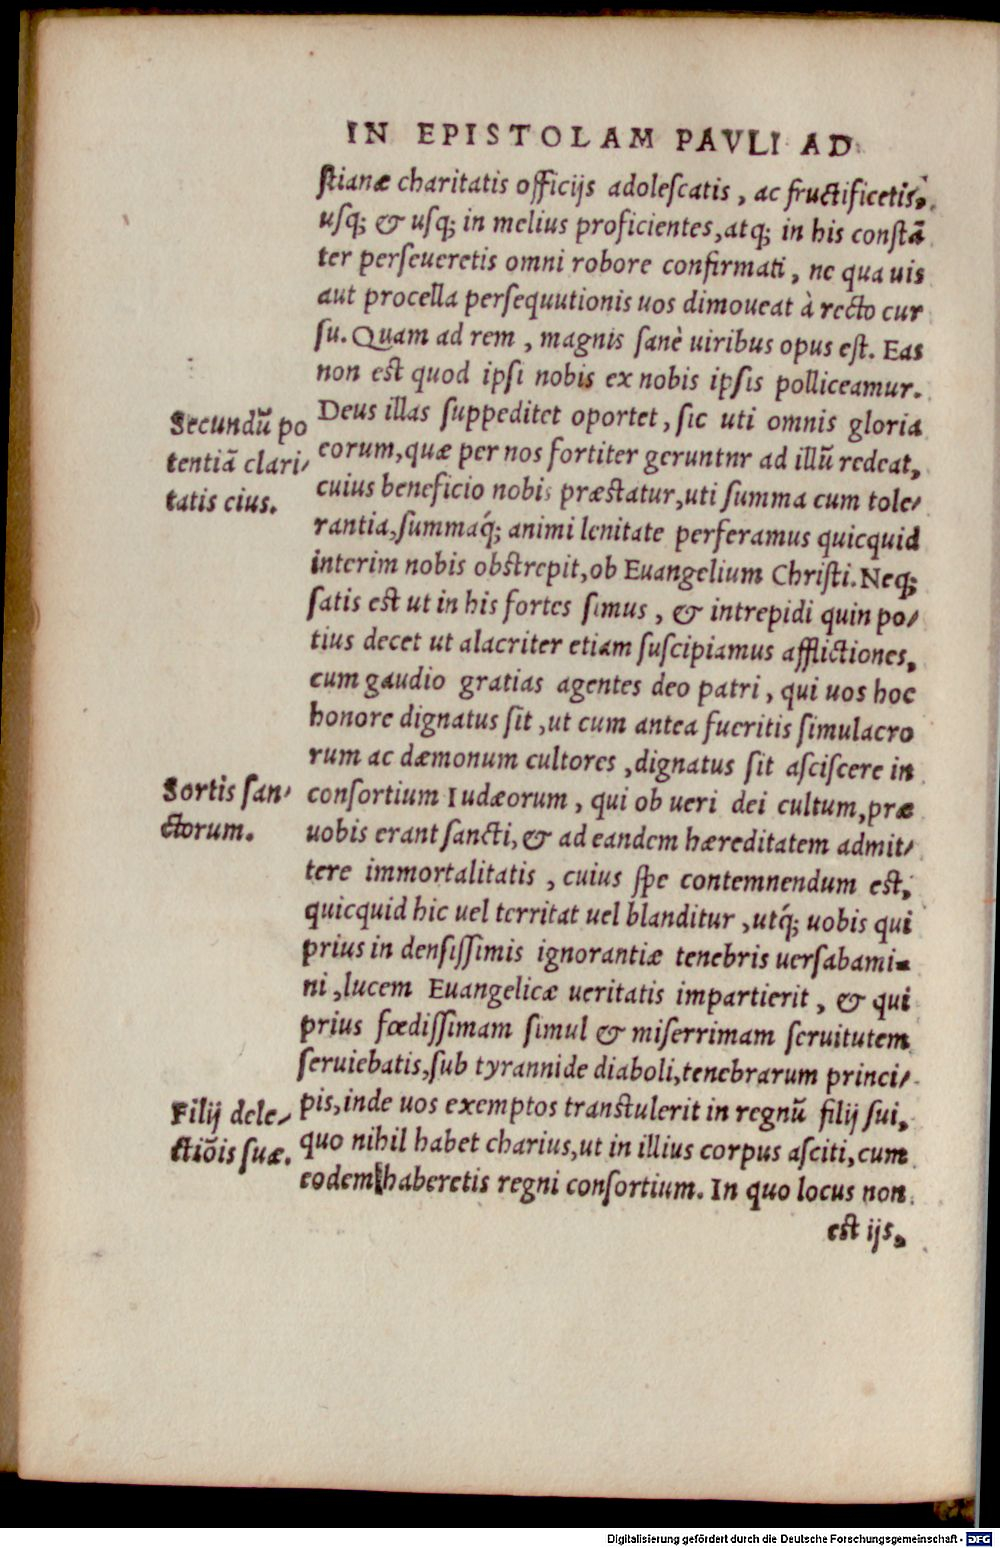 IN EPISTOLAM PAVLI AD
ſtianæ charitatis officijs adoleſcatis, ac fructificetis,
uſq; & uſq; in melius proficientes, atq; in his conſtã
ter perſeueretis omni robore confirmati, ne qua uis
aut procella perſequutionis uos dimoueat à recto cur
ſu. Quam ad rem, magnis ſanè uiribus opus eſt. Eas
non est quod ipſi nobis ex nobis ipſis polliceamur.
Secundũ po
tentiã clari/
tatis eius.
Deus illas ſuppeditet oportet, ſic uti omnis gloria
eorum, quæ per nos fortiter geruntnr ad illũ redeat,
cuius beneficio nobis præſtatur, uti ſumma cum tole/
rantia, ſummaq́; animi lenitate perferamus quicquid
interim nobis obſtrepit, ob Euangelium Chriſti. Neq;
ſatis est ut in his fortes ſimus, & intrepidi quin po/
tius decet ut alacriter etiam ſuſcipiamus afflictiones,
cum gaudio gratias agentes deo patri, qui uos hoc
honore dignatus ſit, ut cum antea fueritis ſimulacro
rum ac dæmonum cultores, dignatus ſit aſciſcere in
Sortis ſan/
ctorum.
conſortium Iudæorum, qui ob ueri dei cultum, præ
uobis erant ſancti, & ad eandem hæreditatem admit/
tere immortalitatis, cuius ſpe contemnendum est,
quicquid hic uel territat uel blanditur, utq́; uobis qui
prius in denſiſſimis ignorantiæ tenebris uerſabami-
ni, lucem Euangelicæ ueritatis impartierit, & qui
prius fœdiſſimam ſimul & miſerrimam ſeruitutem
ſeruiebatis, ſub tyrannide diaboli, tenebrarum princi/
Filij dele/
ctiõis ſuæ.
pis, inde uos exemptos tranſtulerit in regnũ filij ſui,
quo nihil habet charius, ut in illius corpus aſciti, cum
eodem haberetis regni conſortium. In quo locus non
est ijs,
Digitalisierung gefördert durch die Deutsche Forschungsgemeinschaft - DFG